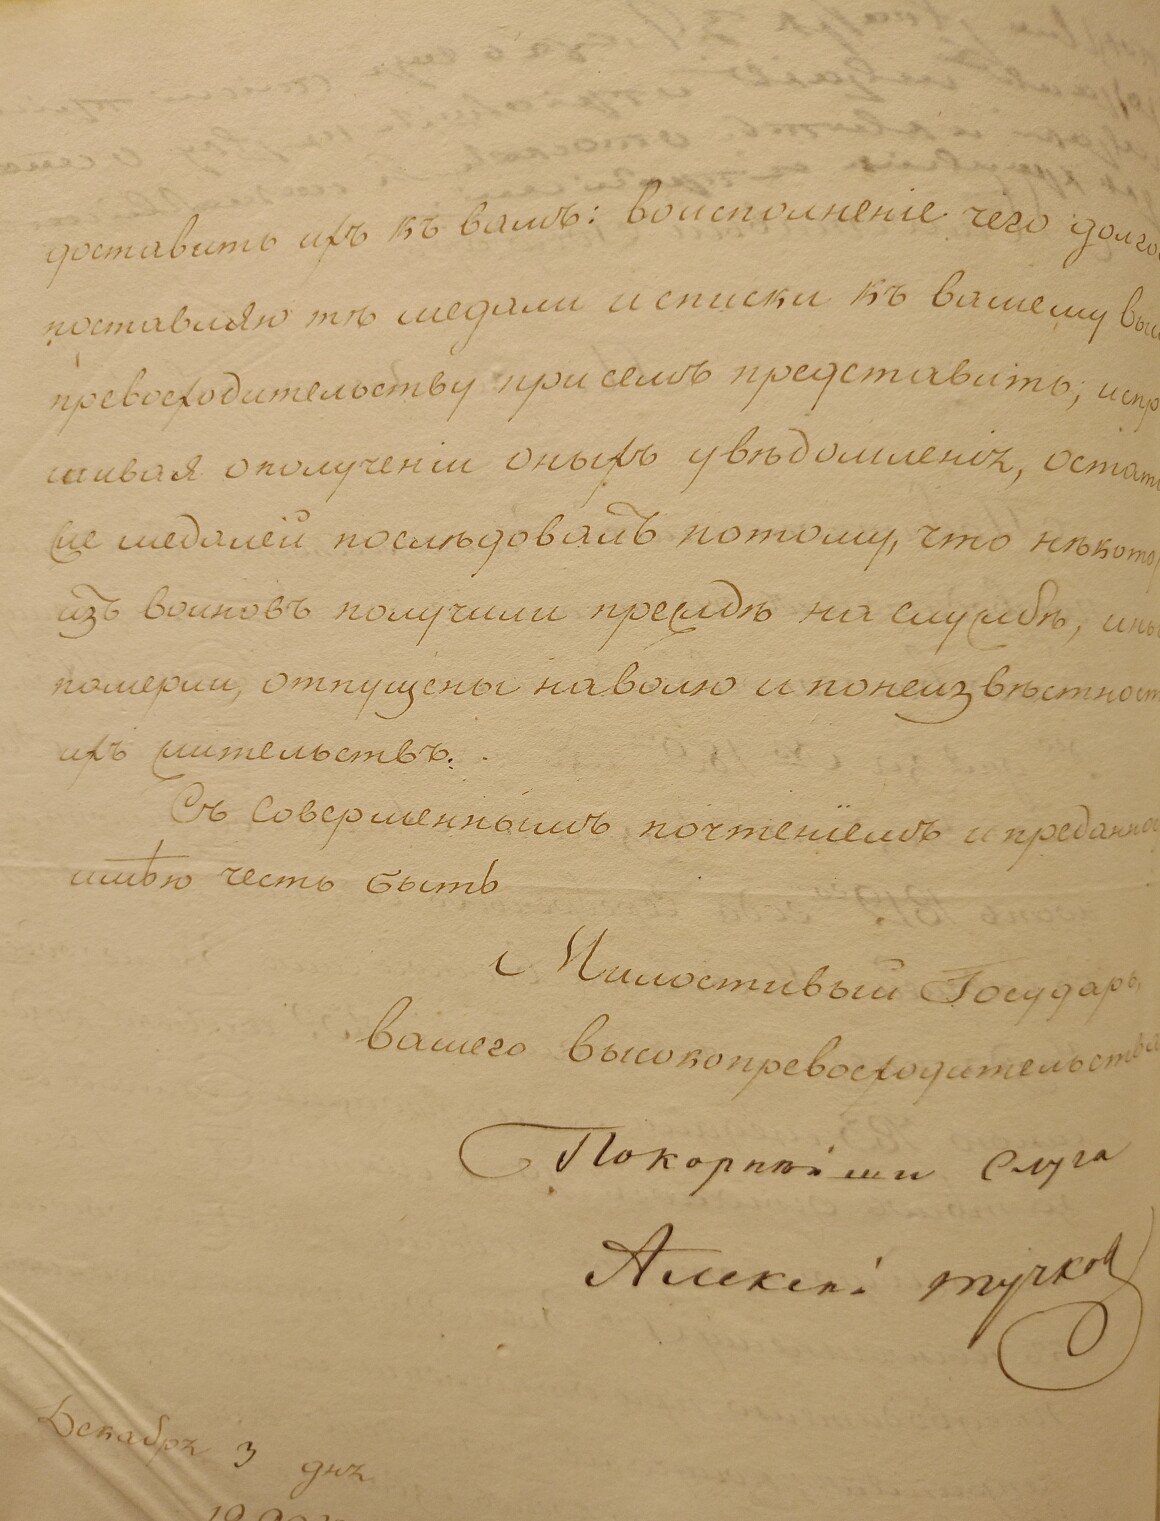 доставить ихъ къ вамъ: воисполненіе чего долго
поставляю тѣ медали и списки къ вашему выс
превосходительству при семъ представить; испра
шивая ополученіи оныхъ увѣдомленія, остат
медалей послѣдовалъ потому, что нѣкотор
изъ воиновъ получили прежде на службѣ, ины
померли, отпущены наволю и понеизвѣстност
ихъ жительствъ.
Съ совершеннымъ почтеніемъ и преданнос
имѣю честь быть
Милостивый Государь,
вашего высокопревосходительства
Покорнѣйши Слуга
Алексѣй тучков
Декабря 3 дня